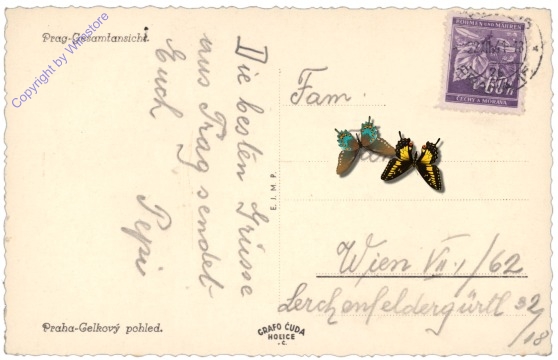 Prag-Gesamtansicht.
Copyright by Winestore
Die besten Grüsse
aus Prag sendet
Euch
Pepi
Praha-Celkový pohled.
E.J.M.P.
GRAFO ČUDA
HOLICE
-C.
BÖHMEN UND MÄHREN
60h
ČECHY A MORAVA
Fam.
Wien VII./62
Lerchenfeldergürtl 32
/18